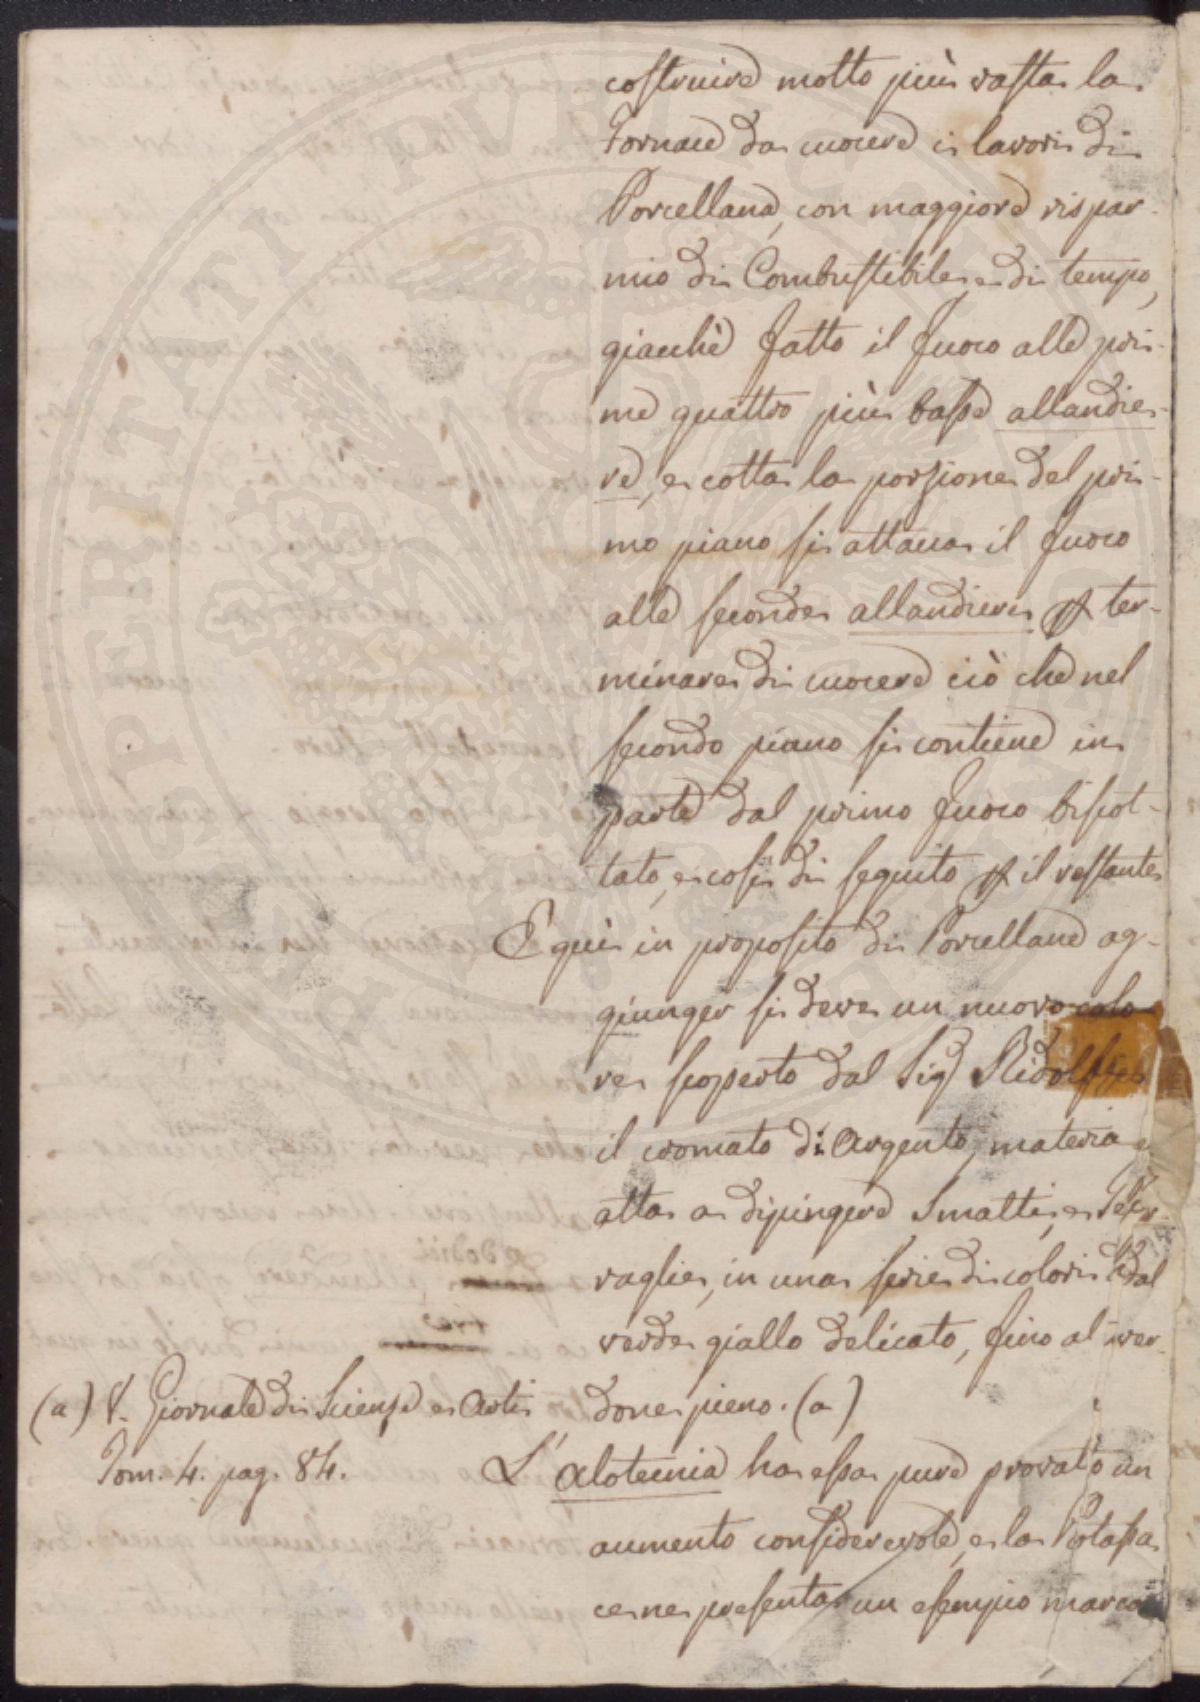 costruire molto più vasta la
Fornace da cuocere i lavori di
Porcellana, con maggiore rispar-
mio di Combustibile e di tempo,
giacchè fatto il fuoco alle pri-
me quattro più basse allandie-
re, e cotta la porzione del pri-
mo piano si attacca il fuoco
alle seconde allandiere p ter-
minare di cuocere ciò che nel
secondo piano si contiene in
parte dal primo fuoco biscot-
tato, e così di seguito p il restante
E quì in proposito di Porcellane ag-
giunger si deve un nuovo colo
re scoperto dal Sig Ridolfi
il cromato di Argento, materia
atta a dipingere Smalti, e
vaglie, in una serie di colori dal
verde giallo delicato, fino al ver-
done pieno. (a)
(a) V. Giornale di Scienze e Arti
Tom. 4. pag. 84.
L'Alotecnia ha essa pure provato un
aumento considerevole, e la Potassa
ce ne presenta un esempio marca